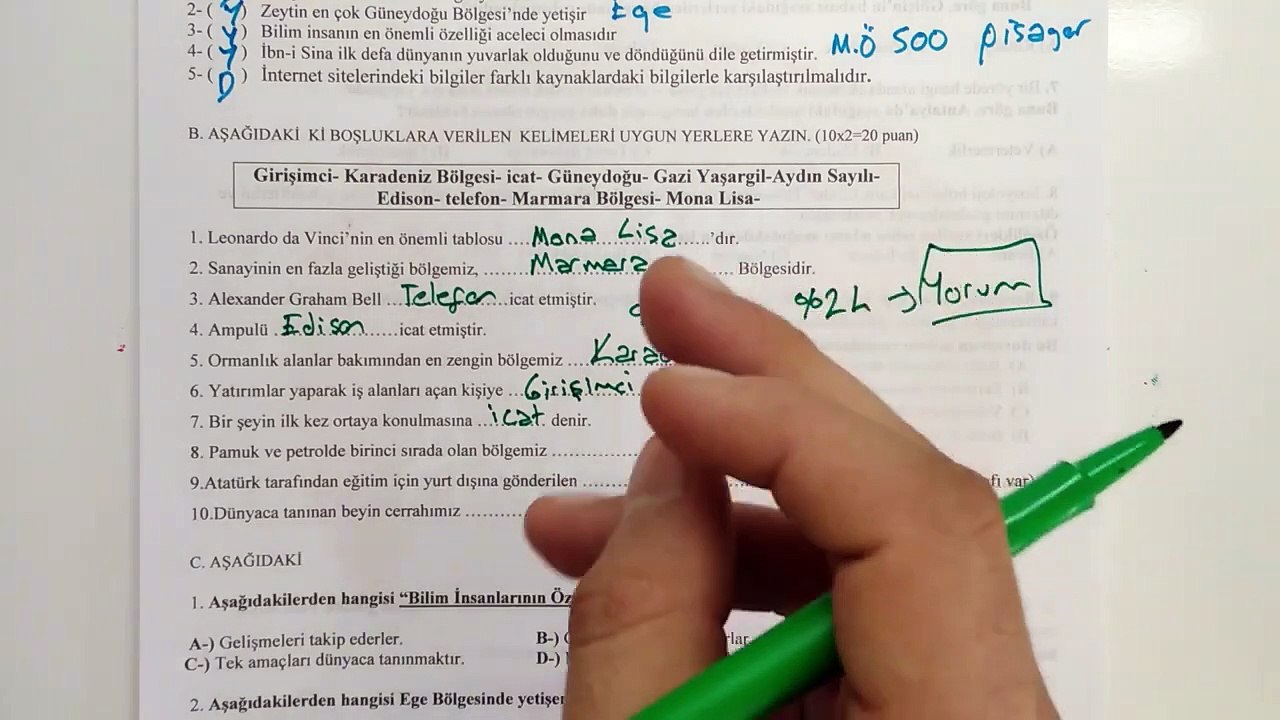 2- ( Y ) Zeytin en çok Güneydoğu Bölgesi'nde yetişir Ege
3- ( Y ) Bilim insanın en önemli özelliği aceleci olmasıdır
4- ( Y ) İbn-i Sina ilk defa dünyanın yuvarlak olduğunu ve döndüğünü dile getirmiştir. M.Ö 500 pisagor
5- ( D ) İnternet sitelerindeki bilgiler farklı kaynaklardaki bilgilerle karşılaştırılmalıdır.
B. AŞAĞIDAKİ Kİ BOŞLUKLARA VERİLEN KELİMELERİ UYGUN YERLERE YAZIN. (10x2=20 puan)
Girişimci- Karadeniz Bölgesi- icat- Güneydoğu- Gazi Yaşargil-Aydın Sayılı-
Edison- telefon- Marmara Bölgesi- Mona Lisa-
1. Leonardo da Vinci'nin en önemli tablosu ....Mona Lisa......'dır.
2. Sanayinin en fazla geliştiği bölgemiz, .......Marmara .... Bölgesidir.
3. Alexander Graham Bell ...Telefon...icat etmiştir. %24 → Yorum
4. Ampulü .Edison......icat etmiştir.
5. Ormanlık alanlar bakımından en zengin bölgemiz ....
6. Yatırımlar yaparak iş alanları açan kişiye ...Girişimci
7. Bir şeyin ilk kez ortaya konulmasına ...icat. denir.
8. Pamuk ve petrolde birinci sırada olan bölgemiz ...............
9.Atatürk tarafından eğitim için yurt dışına gönderilen ........ var)
10.Dünyaca tanınan beyin cerrahımız ..........
C. AŞAĞIDAKİ
1. Aşağıdakilerden hangisi “Bilim İnsanlarının
A-) Gelişmeleri takip ederler. B-)
C-) Tek amaçları dünyaca tanınmaktır. D-)
2. Aşağıdakilerden hangisi Ege Bölgesinde